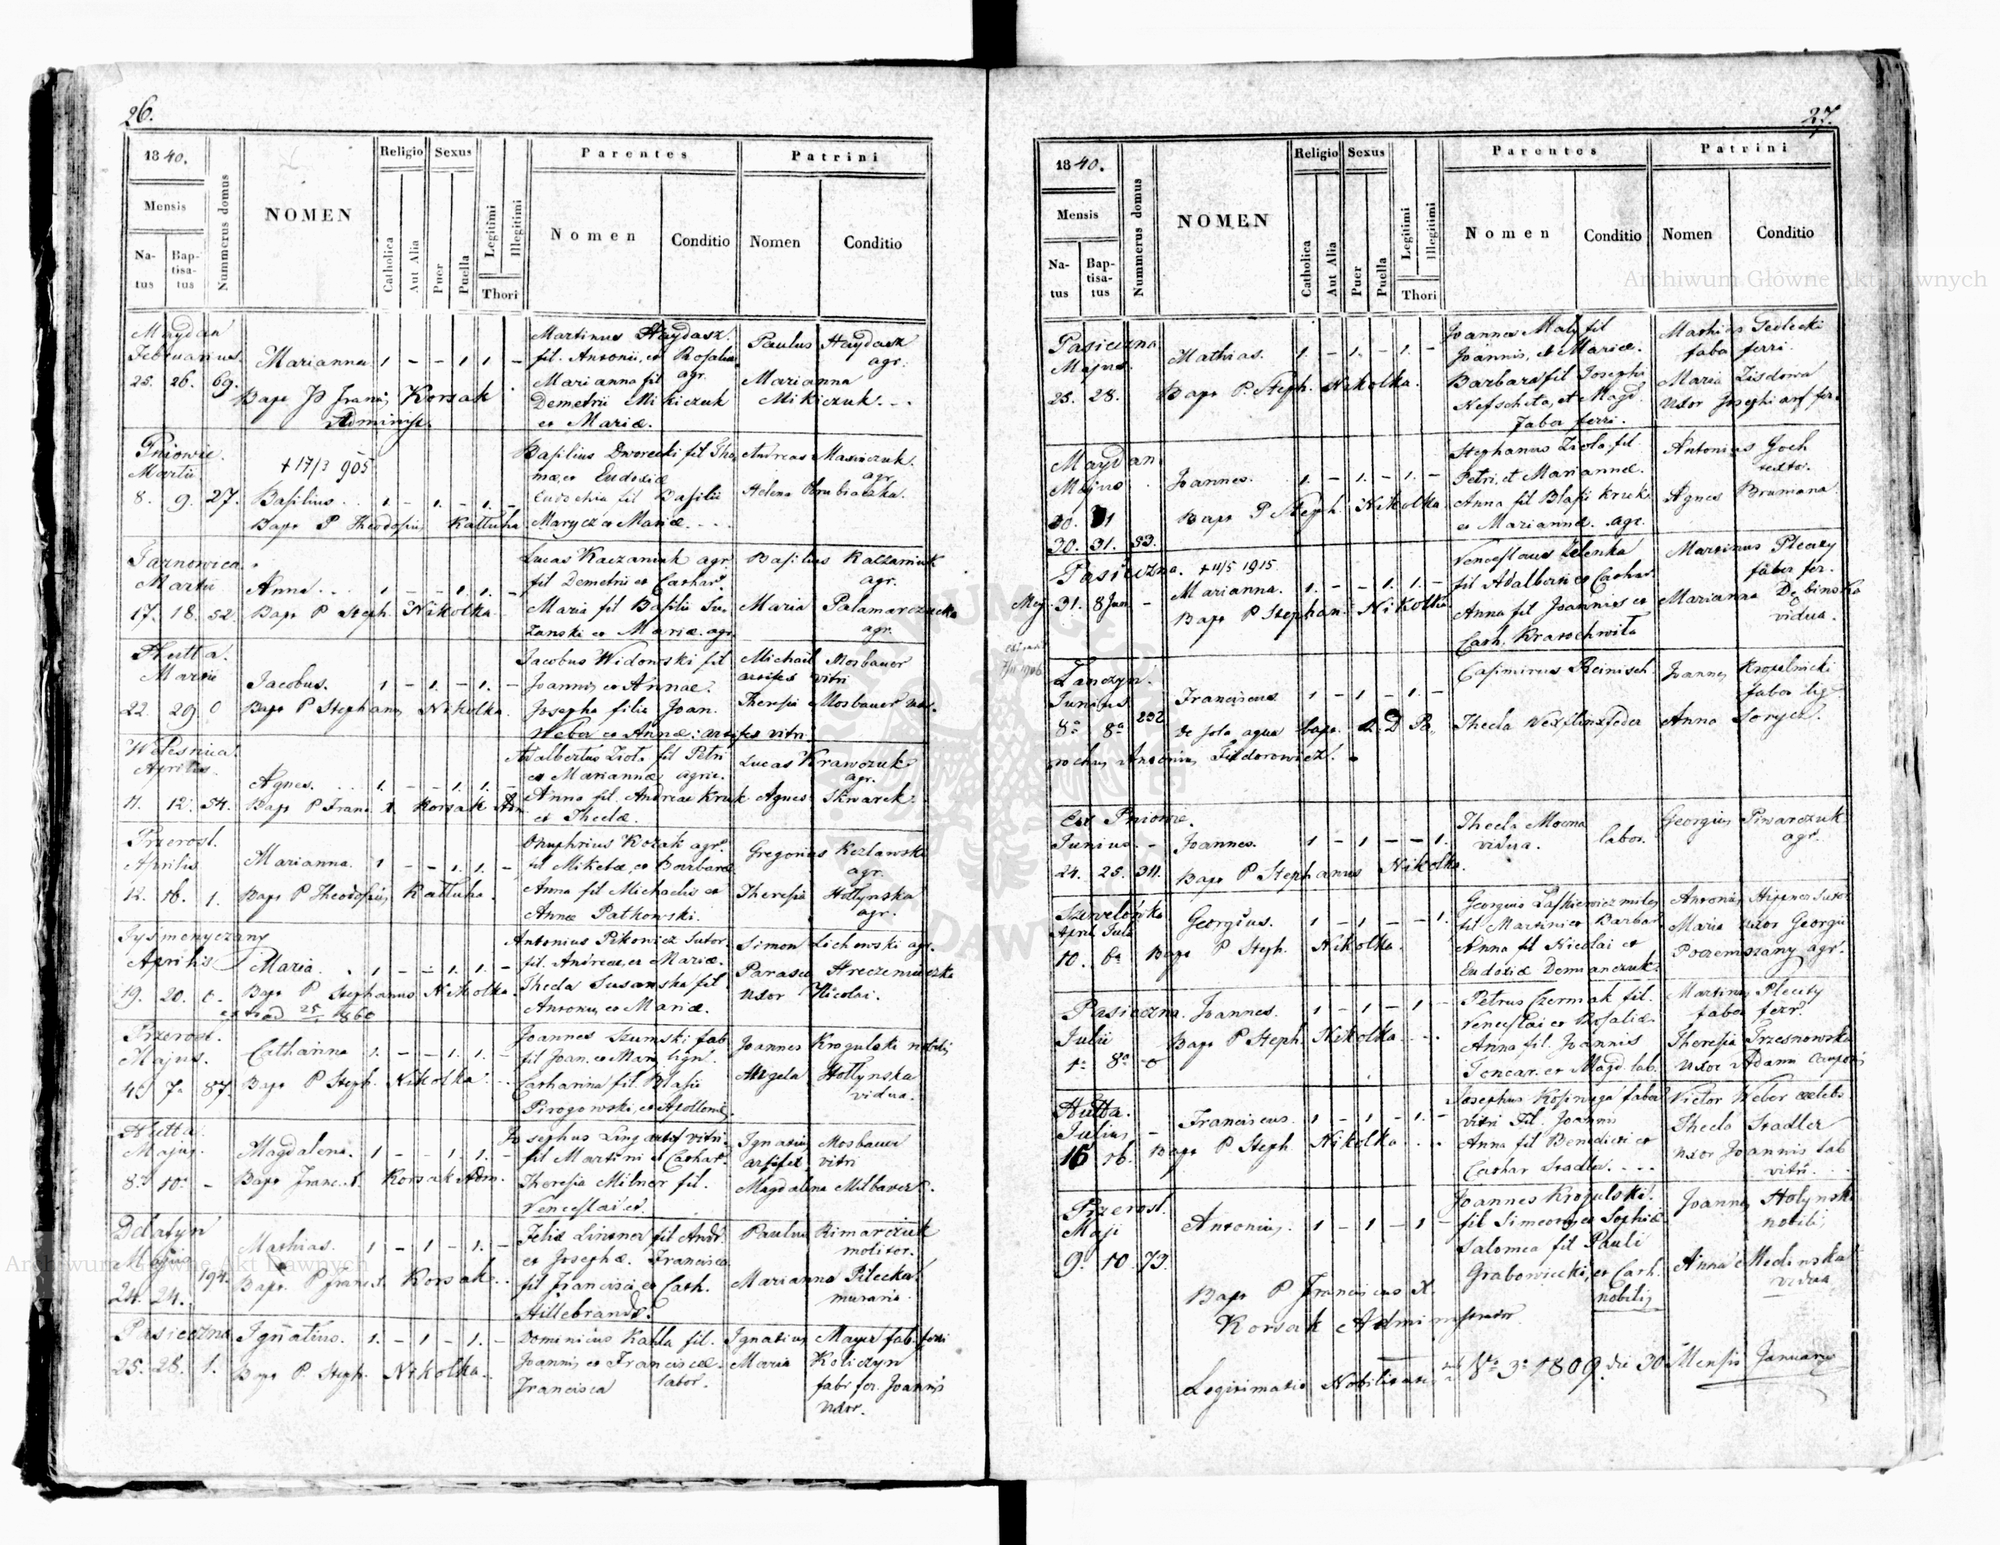 26.
1840.
Mensis
Na-
tus
Bap-
tisa-
tus
Nummerus domus
NOMEN
Religio
Catholica
Aut Alia
Sexus
Puer
Puella
Legitimi
Illegitimi
Thori
Parentes
Nomen
Conditio
Patrini
Nomen
Conditio
Maydan
Februarius
25. 26. 69.
Marianna 1 - - 1. 1. -
Bapt P Franc Korsak
Administ.
Martinus Haydasz
fil. Antonii, et Rosaliae
agr.
Marianna fil
Demetrii Mikiczuk
et Mariæ.
Paulus Haydasz
agr.
Marianna
Mikiczuk. - .
Pniowie.
Martii
8. 9. 27.
+ 17/3 905
Basilius . . 1. - 1. - 1. -
Bapt P Theodosius Kattuha
Basilius Dworecki fil Tho
mæ, et Eudoxiæ
Eudochia fil Basilii
Marycz et Mariæ. - - .
Andreas
agr
Helena
Tarnowica
Martii
17. 18. 52.
Anna. . . 1. - - 1. 1. -
Bapt P Steph. Nikolka
Lucas Kaczaniuk agr
fil Demetrii et Cathar.
Maria fil Basilii
et Mariæ. agr.
Basilius Kaczaniuk
agr.
Maria Palamarczucka
agr.
Hutta.
Martii
22. 29 0
Jacobus. 1 - 1. - 1. -
Bapt P Stephanus Nikolka.
Jacobus Widonski fil
Joannis et Annæ.
Josepha filia Joan.
Weber et Annæ: artifex vitri
Michael Mosbauer
artifex vitri
Theresia Mosbauer uxor.
Aprilis.
11. 12. 54.
Agnes. . . 1. - - 1. 1. -
Bapt P Franc X. Korsak Adm
Adalbertus Ziola fil Petri
et Mariannæ agric.
Anna fil. Andreae Kruk
et Theclæ.
Lucas Krawczuk
agr.
Agnes Skwarek
Przerosl.
Aprilis
12. 16. 1.
Marianna. 1 - - 1. 1. -
Bapt P Theodosius Kattuha.
Onuphrius Kozak agr.
fil Miketæ, et Barbaræ
Anna fil Michaelis et
Annæ Patkowski.
Gregorius Kozlawski
agr.
Theresia Hollynska
agr.
Tysmenyczany
Aprilis
19. 20. 0.
Maria. . 1 - - 1. 1. -
Bapt P Stephanus Nikolka.
25 860
Antonius Pikowicz Sutor.
fil. Andreæ, et Mariæ.
Thecla Susanska fil.
Antonii, et Mariæ.
Simon Lichowski agr.
Uxor Nicolai.
Przerosl.
Majus.
4. 7. 87.
Catharina 1. - - 1. 1. -
Bapt P Steph. Nikolka.
Joannes Szumski fab
fil Joan. et Mar. lign.
Catharina fil. Blasii
Pirogowski, et Apolloniæ.
Joannes Krogulski nobilis
Angela Hollynska
vidua.
Hutta.
Majus.
8. 10. -
Magdalena. 1 - - 1. 1. -
Bapt Franc. X. Korsak Adm.
Josephus Ling artif vitri.
fil Martini et Cathar.
Theresia Milner fil.
Venceslai et.
Ignatius Mosbauer
artifex vitri
Magdalena Milbauer.
Delatyn
Majus
24. 24. 194.
Mathias. 1 - 1 - 1. -
Bapt. P Franc X. Korsak.
Felix Linsner fil Andr.
et Josephæ. Francisca
fil Francisci et Cath.
Hillebrandt.
Paulus Rimarczuk
molitor.
Marianna Pilecka
muraris.
Pasieczna
25. 28. 1.
Ignatius. 1. - 1 - 1. -
Bapt P. Steph. Nikolka.
Dominicus Kabla fil.
Joannis et Franciscæ.
Francisca labor.
Ignatius Mayer fab. ferri
Maria Koliczyn
fabr fer. Joannis
uxor.
27.
1840.
Mensis
Na-
tus
Bap-
tisa-
tus
Nummerus domus
NOMEN
Religio
Catholica
Aut Alia
Sexus
Puer
Puella
Legitimi
Illegitimi
Thori
Parentes
Nomen
Conditio
Patrini
Nomen
Conditio
Pasieczna
Majus.
25. 28.
Mathias. 1. - 1. - 1. -
Bapt P. Steph. Nikolka.
Joannes Maly fil
Joannis, et Mariæ.
Barbara fil Josephi
et Magd.
faber ferri.
Mathias Sedlecki
faber ferri.
Maria
Uxor Josephi
Maydan
Majus
30. 31
30. 31. 53.
Joannes. 1. - 1. - 1. -
Bapt P Steph. Nikolka
Stephanus Ziola fil.
Petri, et Mariannæ.
Anna fil Blasii Kruk
et Mariannæ. agr.
Antonius Goch
textor.
Agnes Brumana.
Pasieczna.
May. 31. 8 Jun -
+ 11/5 1915.
Marianna. 1. - - 1. 1. -
Bapt P Stephan. Nikolka
Venceslaus Zelenka
fil Adalberti et Cathar.
Anna fil Joannis et
Cath. Kratochwila
Martinus Plecity
faber fer.
Marianna Dębinska
vidua.
Lanczyn.
Junius
8a 8a 232
Franciscus 1 - 1 - 1. -
de sola aqua bapt. A. D. Pa
rochus Antonius Fiedorowicz.
Casimirus Reinisch
Thecla
Joannes Kropelnicki
faber lig.
Anna
Ex Pniowie.
Junius. -
24. 25. 311.
Joannes. 1 - 1 - - 1.
Bapt P Stephanus Nikolka.
Thecla Mocna
vidua. labor.
Georgius Piwarczuk
agr.
April Julii
10. 6a
Georgius. 1 - 1 - - 1.
Bapt P Steph. Nikolka.
Georgius Laskiewicz miles
fil Martini et Barbar.
Anna fil Nicolai et
Eudoxiæ Demianczuk
Antonius Hippner Sutor
Maria uxor Georgii
agr.
Pasieczna.
Julii
1a 8a 0
Joannes. 1 - 1 - 1 -
Bapt P Steph. Nikolka. . .
Petrus Czermak fil.
Venceslai et Rosaliæ.
Anna fil. Joannis
et Magd. lab.
Martinus Plecity
faber ferr.
Theresia Trzesnowska
uxor Adami
Hutta.
Julius -
16 16.
Franciscus. 1 - 1 - 1. -
Bapt P Steph Nikolka . .
Josephus Kosinaga faber
vitri Fil. Joannis
Anna fil Benedicti et
Cathar Stadler. - - -
Victor Weber cælebs.
Thecla Stadler
uxor Joannis lab
vitri. - - -
Przerosl.
Maji
9. 10. 73.
Antonius. 1 - 1 - 1 -
Bapt P Franciscus X.
Korsak Administrator
Joannes Krogulski.
fil Simeonis et Sophiæ
Salomea fil Pauli
Grabowiecki, et Cath.
nobilis
Joannes Holynski
nobilis
Anna Medinska
vidua
Legitimatio Nobilitatis sub No 3o 1809. die 30 Mensis Januarii
Archiwum Główne Akt Dawnych
Archiwum Główne Akt Dawnych